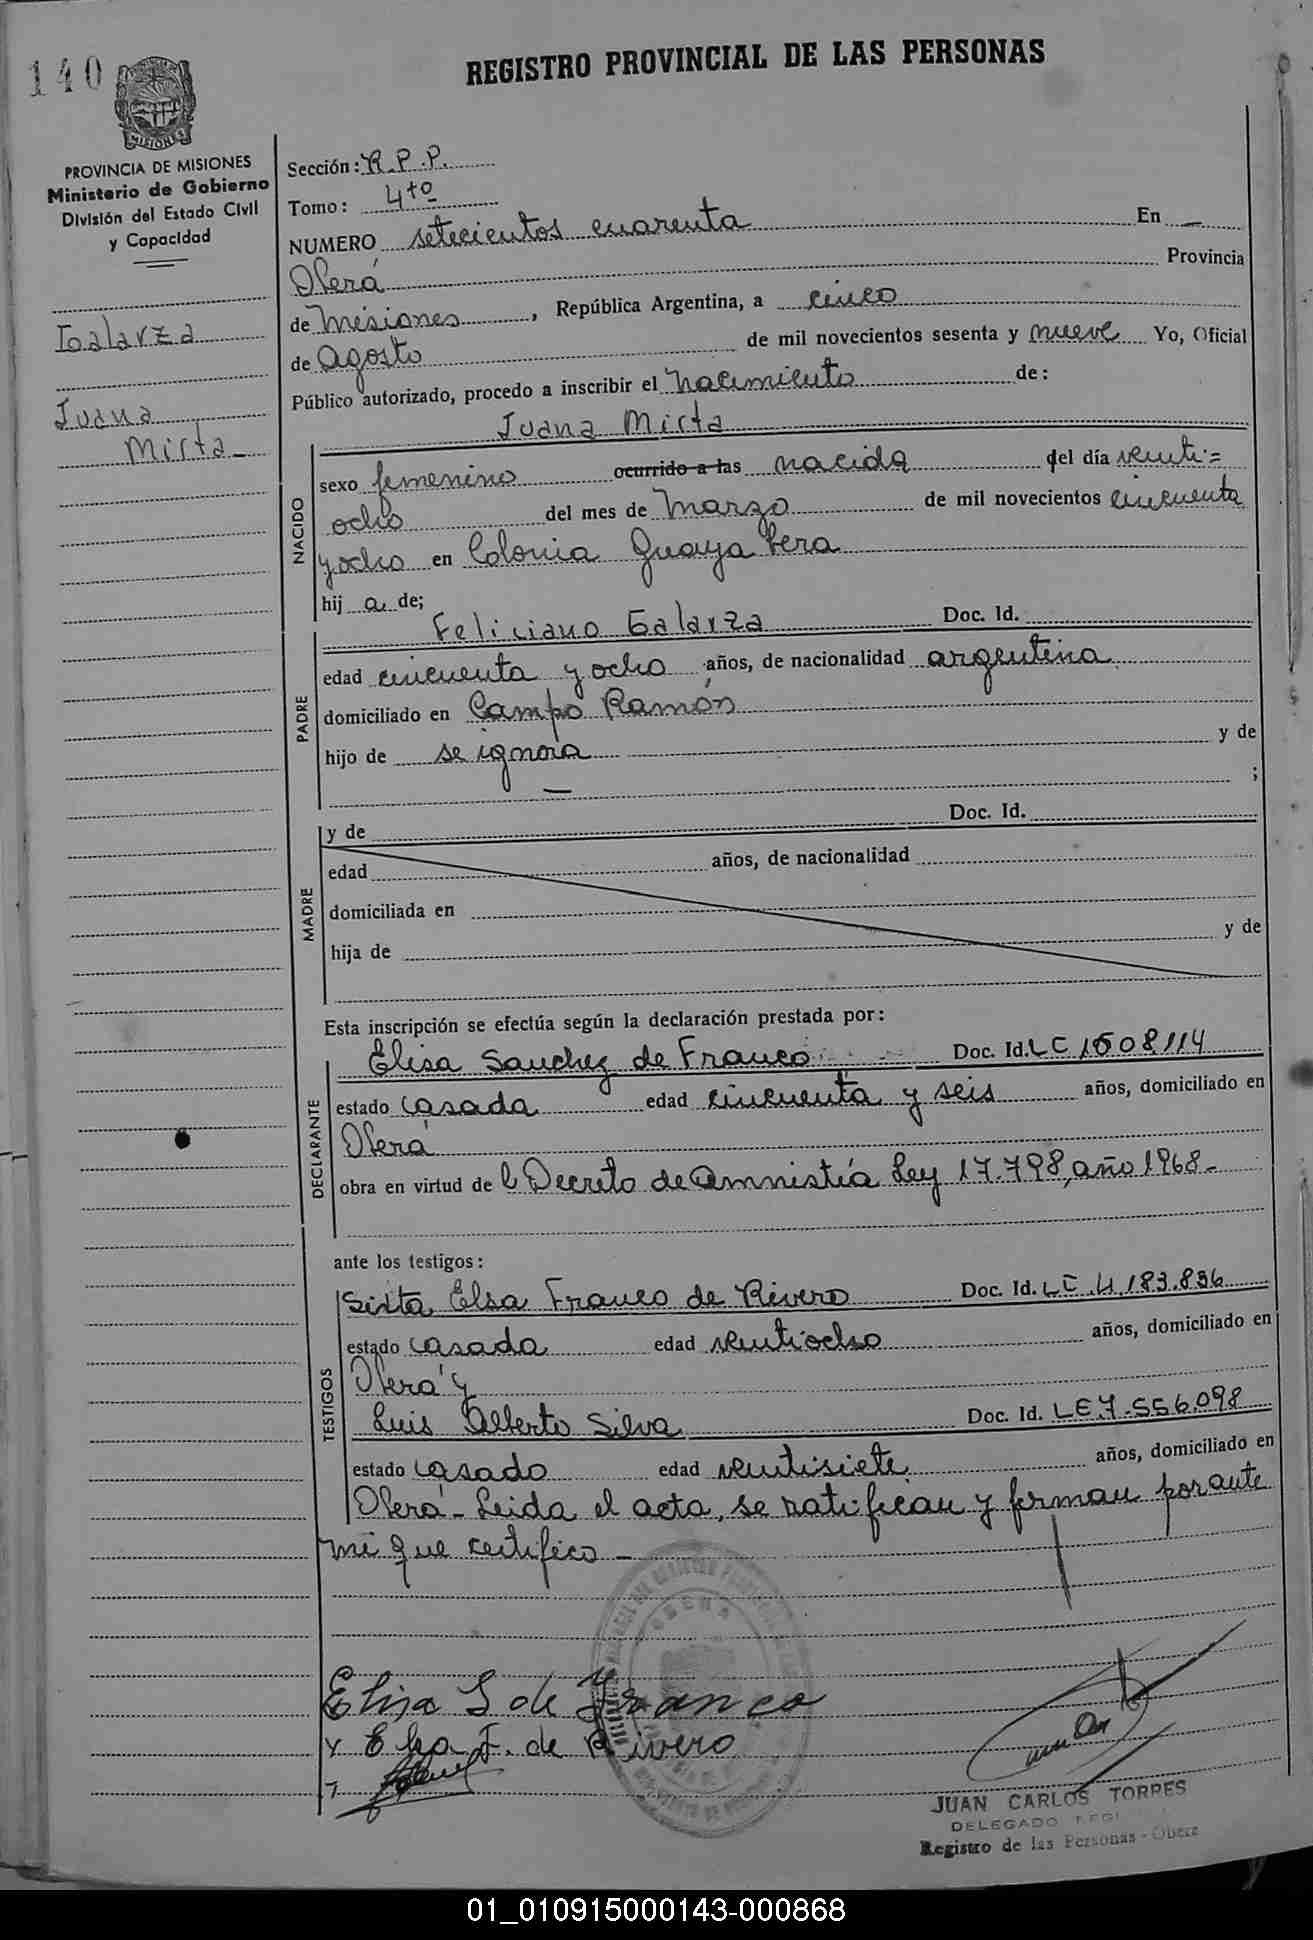 140
REGISTRO PROVINCIAL DE LAS PERSONAS
MISIONES
PROVINCIA DE MISIONES
Ministerio de Gobierno
División del Estado Civil
y Capacidad
Galarza
Juana
Mirta
Sección: R.P.P.
Tomo: 4to
NUMERO setecientos cuarenta En —
Oberá Provincia
de Misiones, República Argentina, a cinco
de Agosto de mil novecientos sesenta y nueve Yo, Oficial
Público autorizado, procedo a inscribir el nacimiento de:
Juana Mirta
NACIDO
sexo femenino ocurrido a las nacida del día venti=
ocho del mes de Marzo de mil novecientos cincuenta
y ocho en Colonia Guayabera
hij a de;
PADRE
Feliciano Galarza Doc. Id.
edad cincuenta y ocho años, de nacionalidad argentina
domiciliado en Campo Ramón
hijo de se ignora y de
— ;
MADRE
y de Doc. Id.
edad años, de nacionalidad
domiciliada en
hija de y de
Esta inscripción se efectúa según la declaración prestada por:
DECLARANTE
Elisa Sanchez de Franco Doc. Id. LC 1608114
estado casada edad cincuenta y seis años, domiciliado en
Oberá
obra en virtud de l Decreto de Amnistía Ley 17.798, año 1968-
ante los testigos:
TESTIGOS
Sixta Elsa Franco de Rivero Doc. Id. LC 4.183.836
estado casada edad ventiocho años, domiciliado en
Oberá y
Luis Alberto Silva Doc. Id. LE 7.556.098
estado casado edad ventisiete años, domiciliado en
Oberá - Leida el acta, se ratifican y firman por ante
mi que certifico -
Elisa S de Franco
y Elsa F. de Rivero
JUAN CARLOS TORRES
DELEGADO
Registro de las Personas - Oberá
01_010915000143-000868